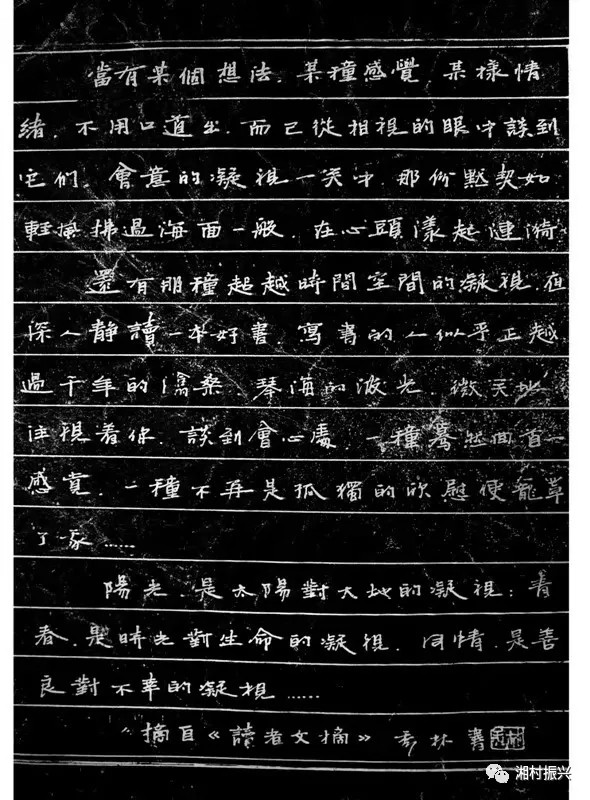 當有某個想法,某種感覺,某樣情
緒,不用口道出,而已從相視的眼中談到
它們,會意的凝視一笑中,那份默契如
輕風拂過海面一般,在心頭漾起漣漪。
還有那種超越時間空間的凝視,夜
深人靜讀一本好書,寫書的人似乎正越
過千年的滄桑 琴海的波光,微笑地
注視着你,談到會心處,一種驀然回首一
感覺,一種不再是孤獨的欣慰便籠草
了家……
陽光,是太陽對大地的凝視;青
春,是時光對生命的凝視,同情,是善
良對不幸的凝視……
摘自《讀者文摘》 秀林書
湘村振兴